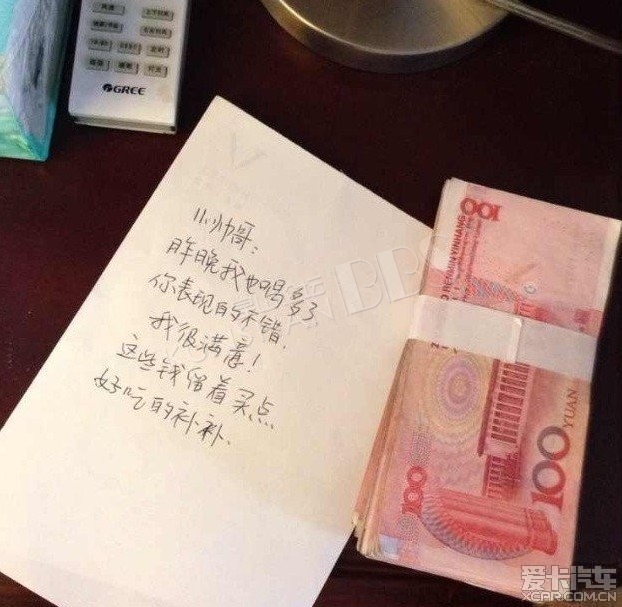 GREE
小帅哥:
昨晚我也喝多了
你表现的不错.
我很满意!
这些钱留着买点
好吃的补补.
100
O RENMIN YINHANG
100
100
YUAN
爱卡汽车
XCAR.COM.CN